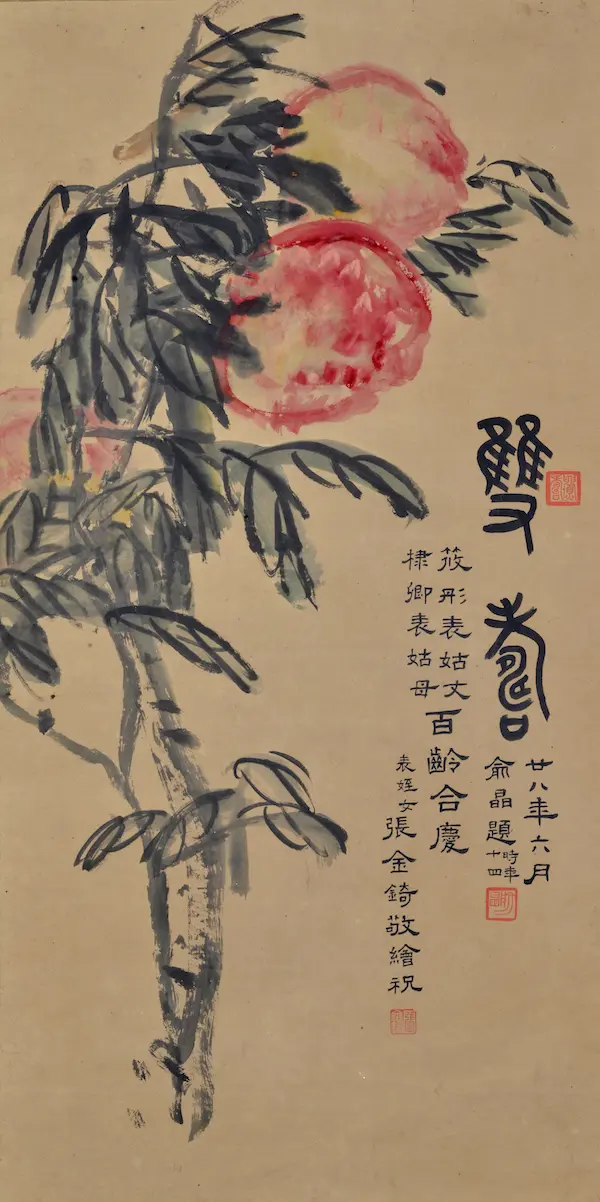 雙壽
廿八年六月
俞晶題時年十四
筱彤表姑丈
棣卿表姑母
百齡合慶
表姪女張金錡敬繪祝